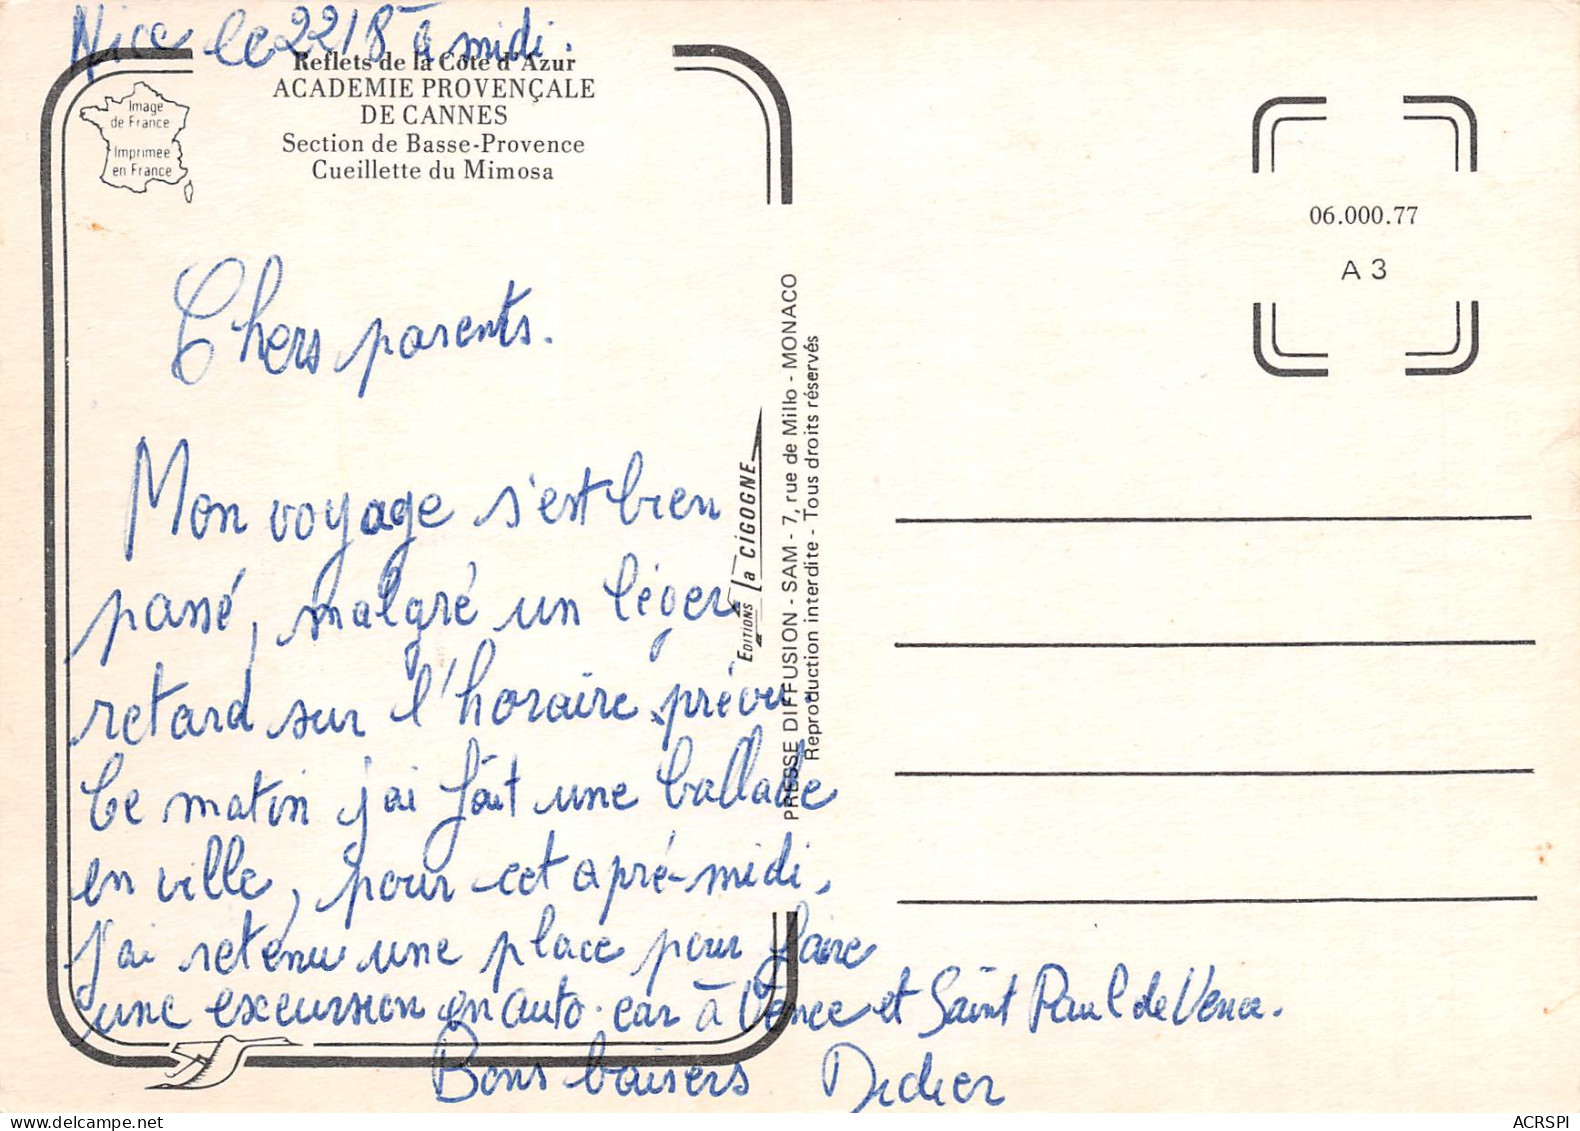 Nice le 22/8 à midi.
Reflets de la Côte d'Azur
ACADEMIE PROVENÇALE
DE CANNES
Section de Basse-Provence
Cueillette du Mimosa
Image
de France
Imprimée
en France
06.000.77
A 3
Chers parents.
Mon voyage s'est bien
passé, malgré un léger
retard sur l'horaire prévu.
Ce matin j'ai fait une ballade
en ville, pour cet apré-midi,
j'ai retenu une place pour faire
une excursion en auto-car à Vence et Saint Paul de Vence.
Bons baisers Didier
EDITIONS la CIGOGNE
PRESSE DIFFUSION - SAM - 7, rue de Millo - MONACO
Reproduction interdite - Tous droits réservés
ACRSPI